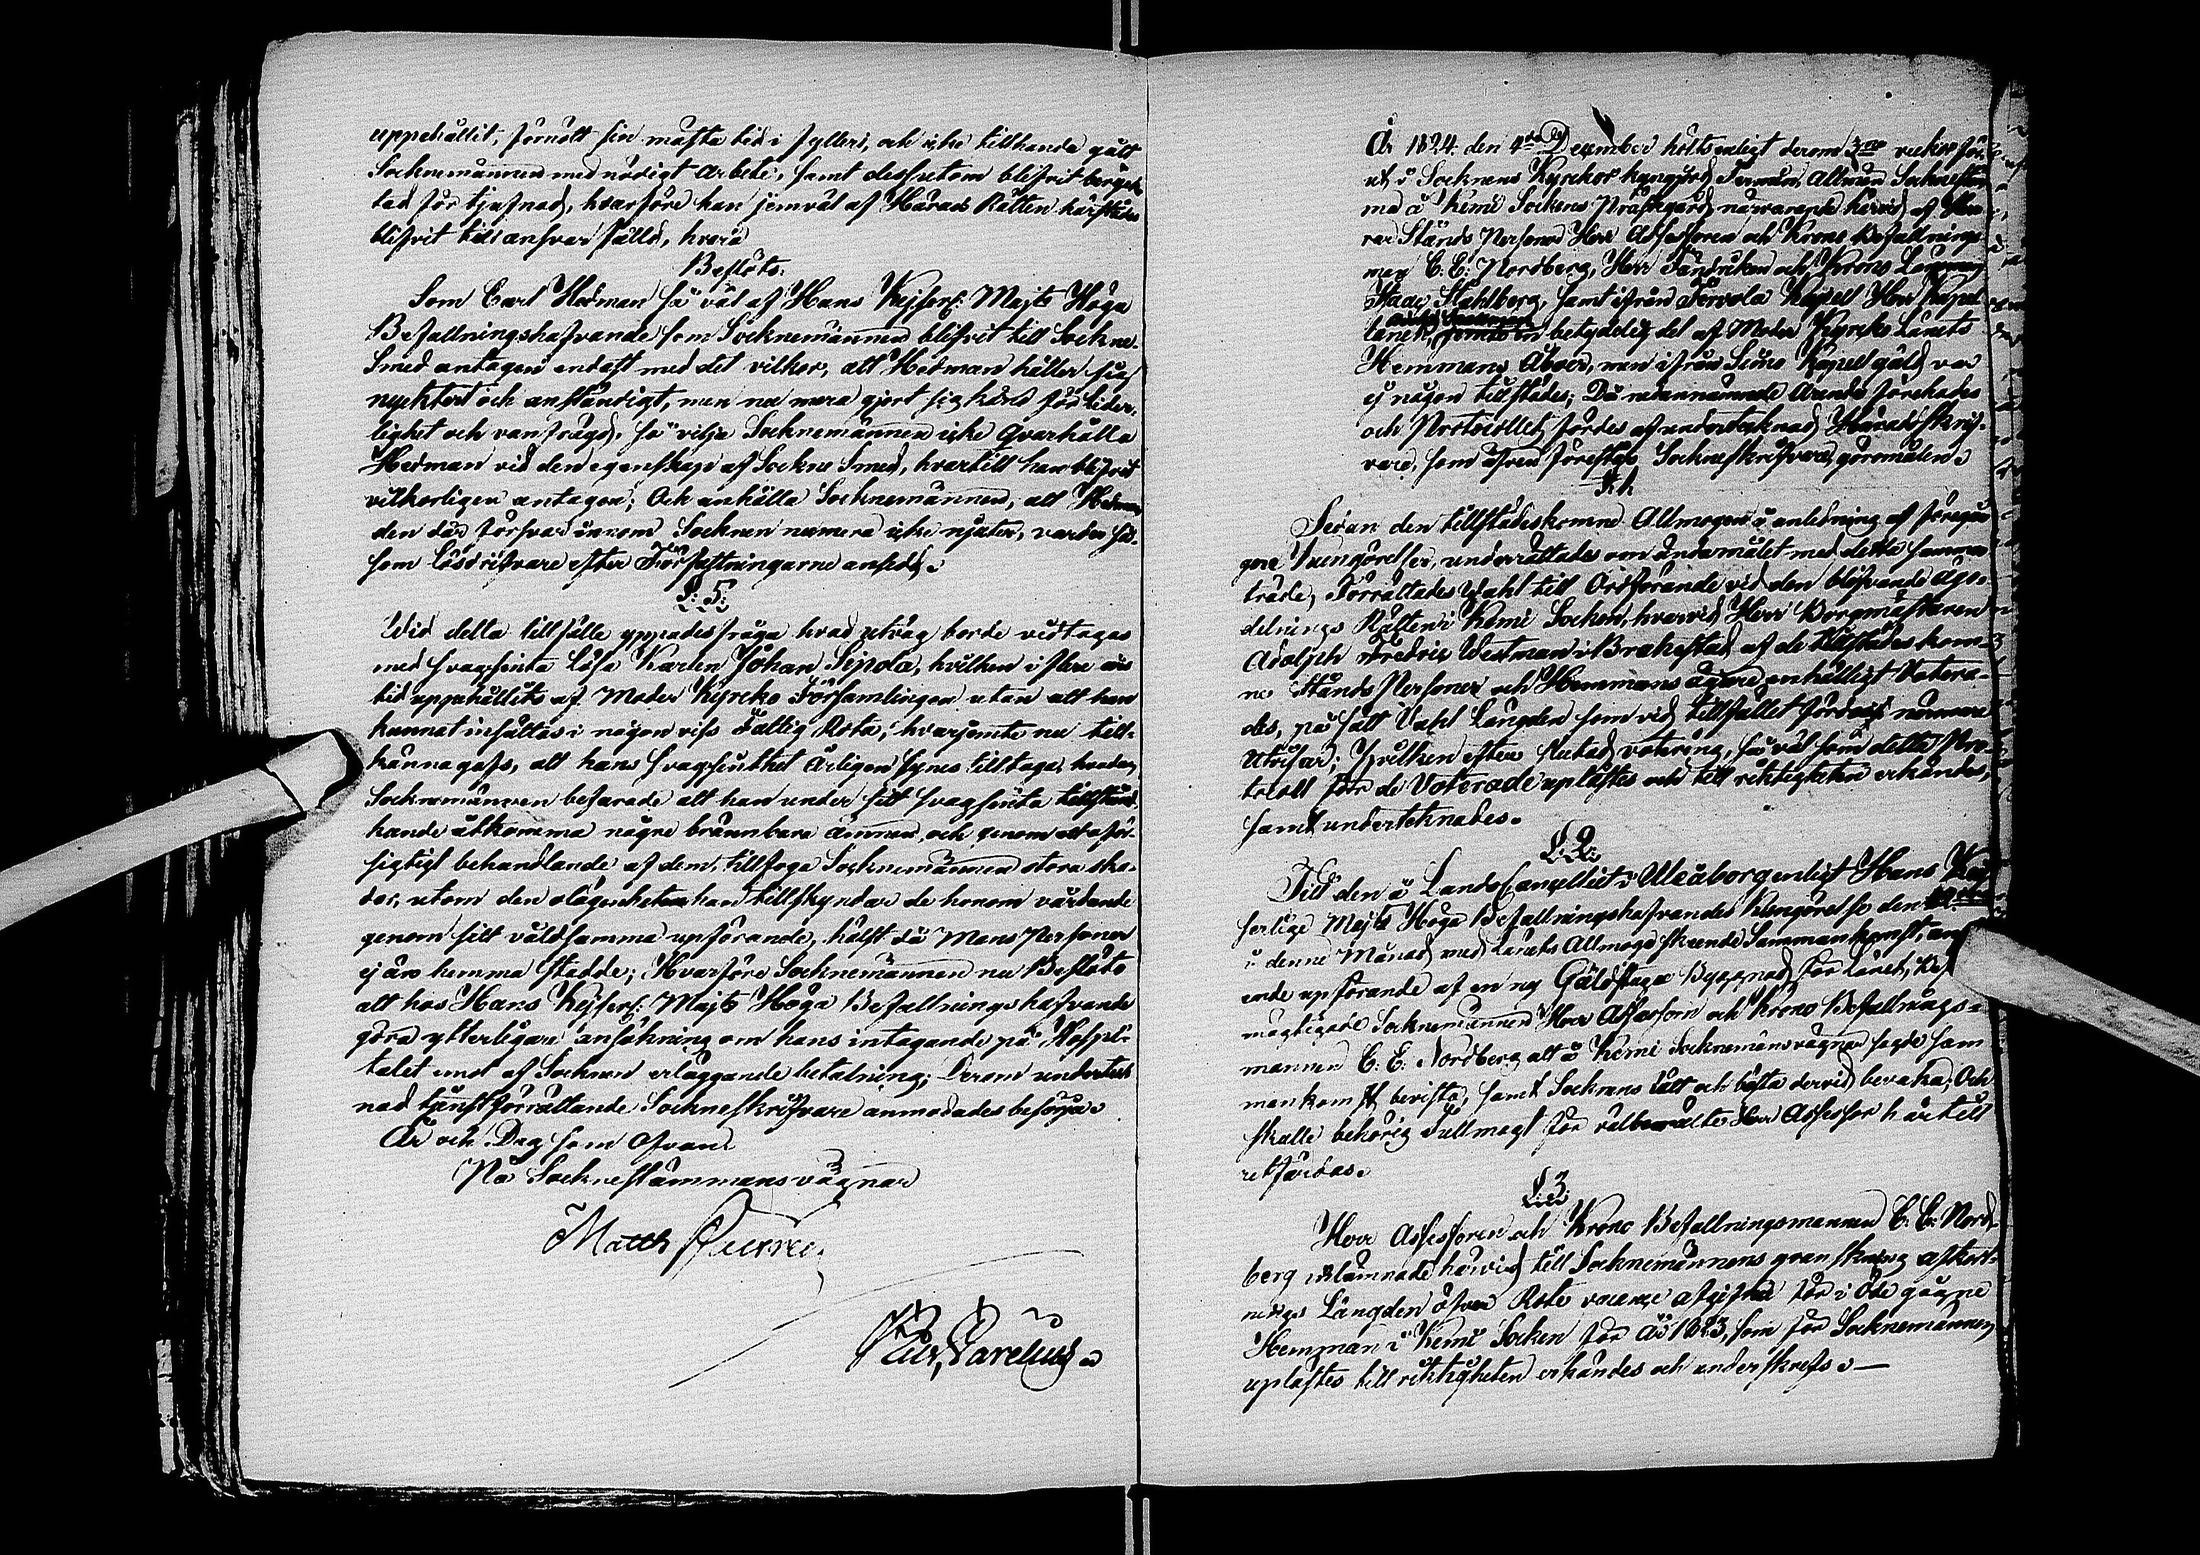 uppehållit, förnött sin mästa tid i fylleri, och icke tillhanda gått
Socknemännen med nödigt arbete, samt dessutom blifvit beryck-
tad för tjufnad, hvarföre han jemväl af Härads Rätten härstädes
blifvit till ansvar fälld, hvarå
Beslöts:
Som Carl Hedman så väl af Hans Kejserl: Majts Höga
Befallningshafvande som Socknemännen blifvit till Sockne
Smed antagen endast med det vilkor, att Hedman håller sig
nycktert och anständigt, men nu mera gjort sig känd för lider-
lighet och vanfrägd, så vilja Socknemännen icke qvarhålla
Hedman vid den egenskap af Sockne Smed, hvartill han blifvit
vilkorligen antagen; Och anhålla Socknemännen, att Hedman
den där försvar inom Socknen numera icke njuter, varder så-
som lösdrifvare efter Författningarne ansedd.
§: 5:
Wid detta tillfälle yppades fråga hvad utväg borde vidtagas
med svagsinta Lösa Karlen Johan Sipola, hvilken i flere års
tid uppehållits af Moder Kyrko Församlingen utan att han
kunnat insättas i någon viss Fattig Rota, hvarjemte nu till-
kännagafs, att hans svagsinthet årligen synes tilltaga, hvadan
Socknemännen befarade att han under sitt svagsinta tillstånd
kunde åtkomma någre brännbara ämnen, och genom oför-
sigtigt behandlande af dem, tillfoga Socknemännen stora ska-
dor, utom den olägenheten han tillskyndar de honom vårdande
genom sitt våldsamma upförande, hälst då Mans Personer
ej äro hemma stadde; Hvarföre Socknemännen nu Beslöto
att hos Hans Kejserl: Majts Höga Befallningshafvande
göra ytterligare ansökning om hans intagande på Hospi-
talet emot af Socknen erläggande betalning; Derom underteck-
nad tjenstförrättande Sockneskrifvare anmodades besörja.
År och Dag som ofvan.
På Sockneståmmans vägnar
Matth
År 1824 den 4de December hölts enligt derom 3ne veckor för-
ut i Socknens Kyrkor kungjord Termin, Allmän Socknestäm
ma å Kemi Sockens Prästegård, närvarande härvid af Her-
rar Stånds Personer Herr Assessoren och Krono Befallnings
man C. E. Nordberg, Herr Fändriken och Krono Länsman
Isaac Ståhlberg, samt ifrån Tervola Kapell Herr Kapel
lanen, betydelig del af Moder Kyrko Länets
Hemmans Åboer, men ifrån Simo Kapell gäld var
ej någon tillstädes; Då nedannämnde ärende förehades
och Protocollet fördes af undertecknad Häradsskrif-
vare, som äfven förestår Sockneskrifvare göromålen.
§: 1:
Sedan den tillstädeskomne Allmogen i anledning af föregån
gne Kungörelser, underrättades om ändamålet med detta samman
träde, Förrättades Wahl till Ordförande vid den blifvande Ägo-
delnings Rätten i Kemi Socken, hvarvid Herr Borgmästaren
Adolph Fredric Westman i Brahestad af de tillstädes kom-
ne Stånds Personer och Hemmans ägare enhälligt Votera-
des, på sätt Vahl Längden som vid tillfället fördes närmare
utvisar; Hvilken efter slutad votering, så väl som detta Pro-
tocoll för de Voterade uplästes och till riktigheten erkändes,
samt undertecknades.
§: 2:
Till den å Lands Cancelliet i Uleåborg enligt Hans Kej
serlige Majts Höga Befallningshafvandes Kungörelse den
i denne Månad med Länets Allmoge skeende Sammankomst, an
ende upförande af en ny Gäldstuga Byggnad för Länet, Be
mägtigade Socknemännen Herr Assessorn och Krono Befallnings-
mannen C. E. Nordberg att å Kemi Socknemäns vägnar sagde Sam
mankomst bevista, samt Socknens rätt och bästa dervid bevaka; Och
skulle behörig Fullmagt för välbemälte Herr Assessor härtill
utfärdas.
§: 3
Herr Assessoren och Krono Befallningsmannen C. E. Nord-
berg inlämnade härvid till Socknemännens granskning afkort-
nings Längden öfver Rote vacance afgiften för i öde gågne
Hemman i Kemi Socken för År 1823, som för Socknemännen
uplästes till riktigheten erkändes och underskrefs. —